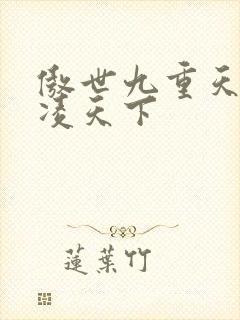 傲世九重天
凌天下
蓮葉竹